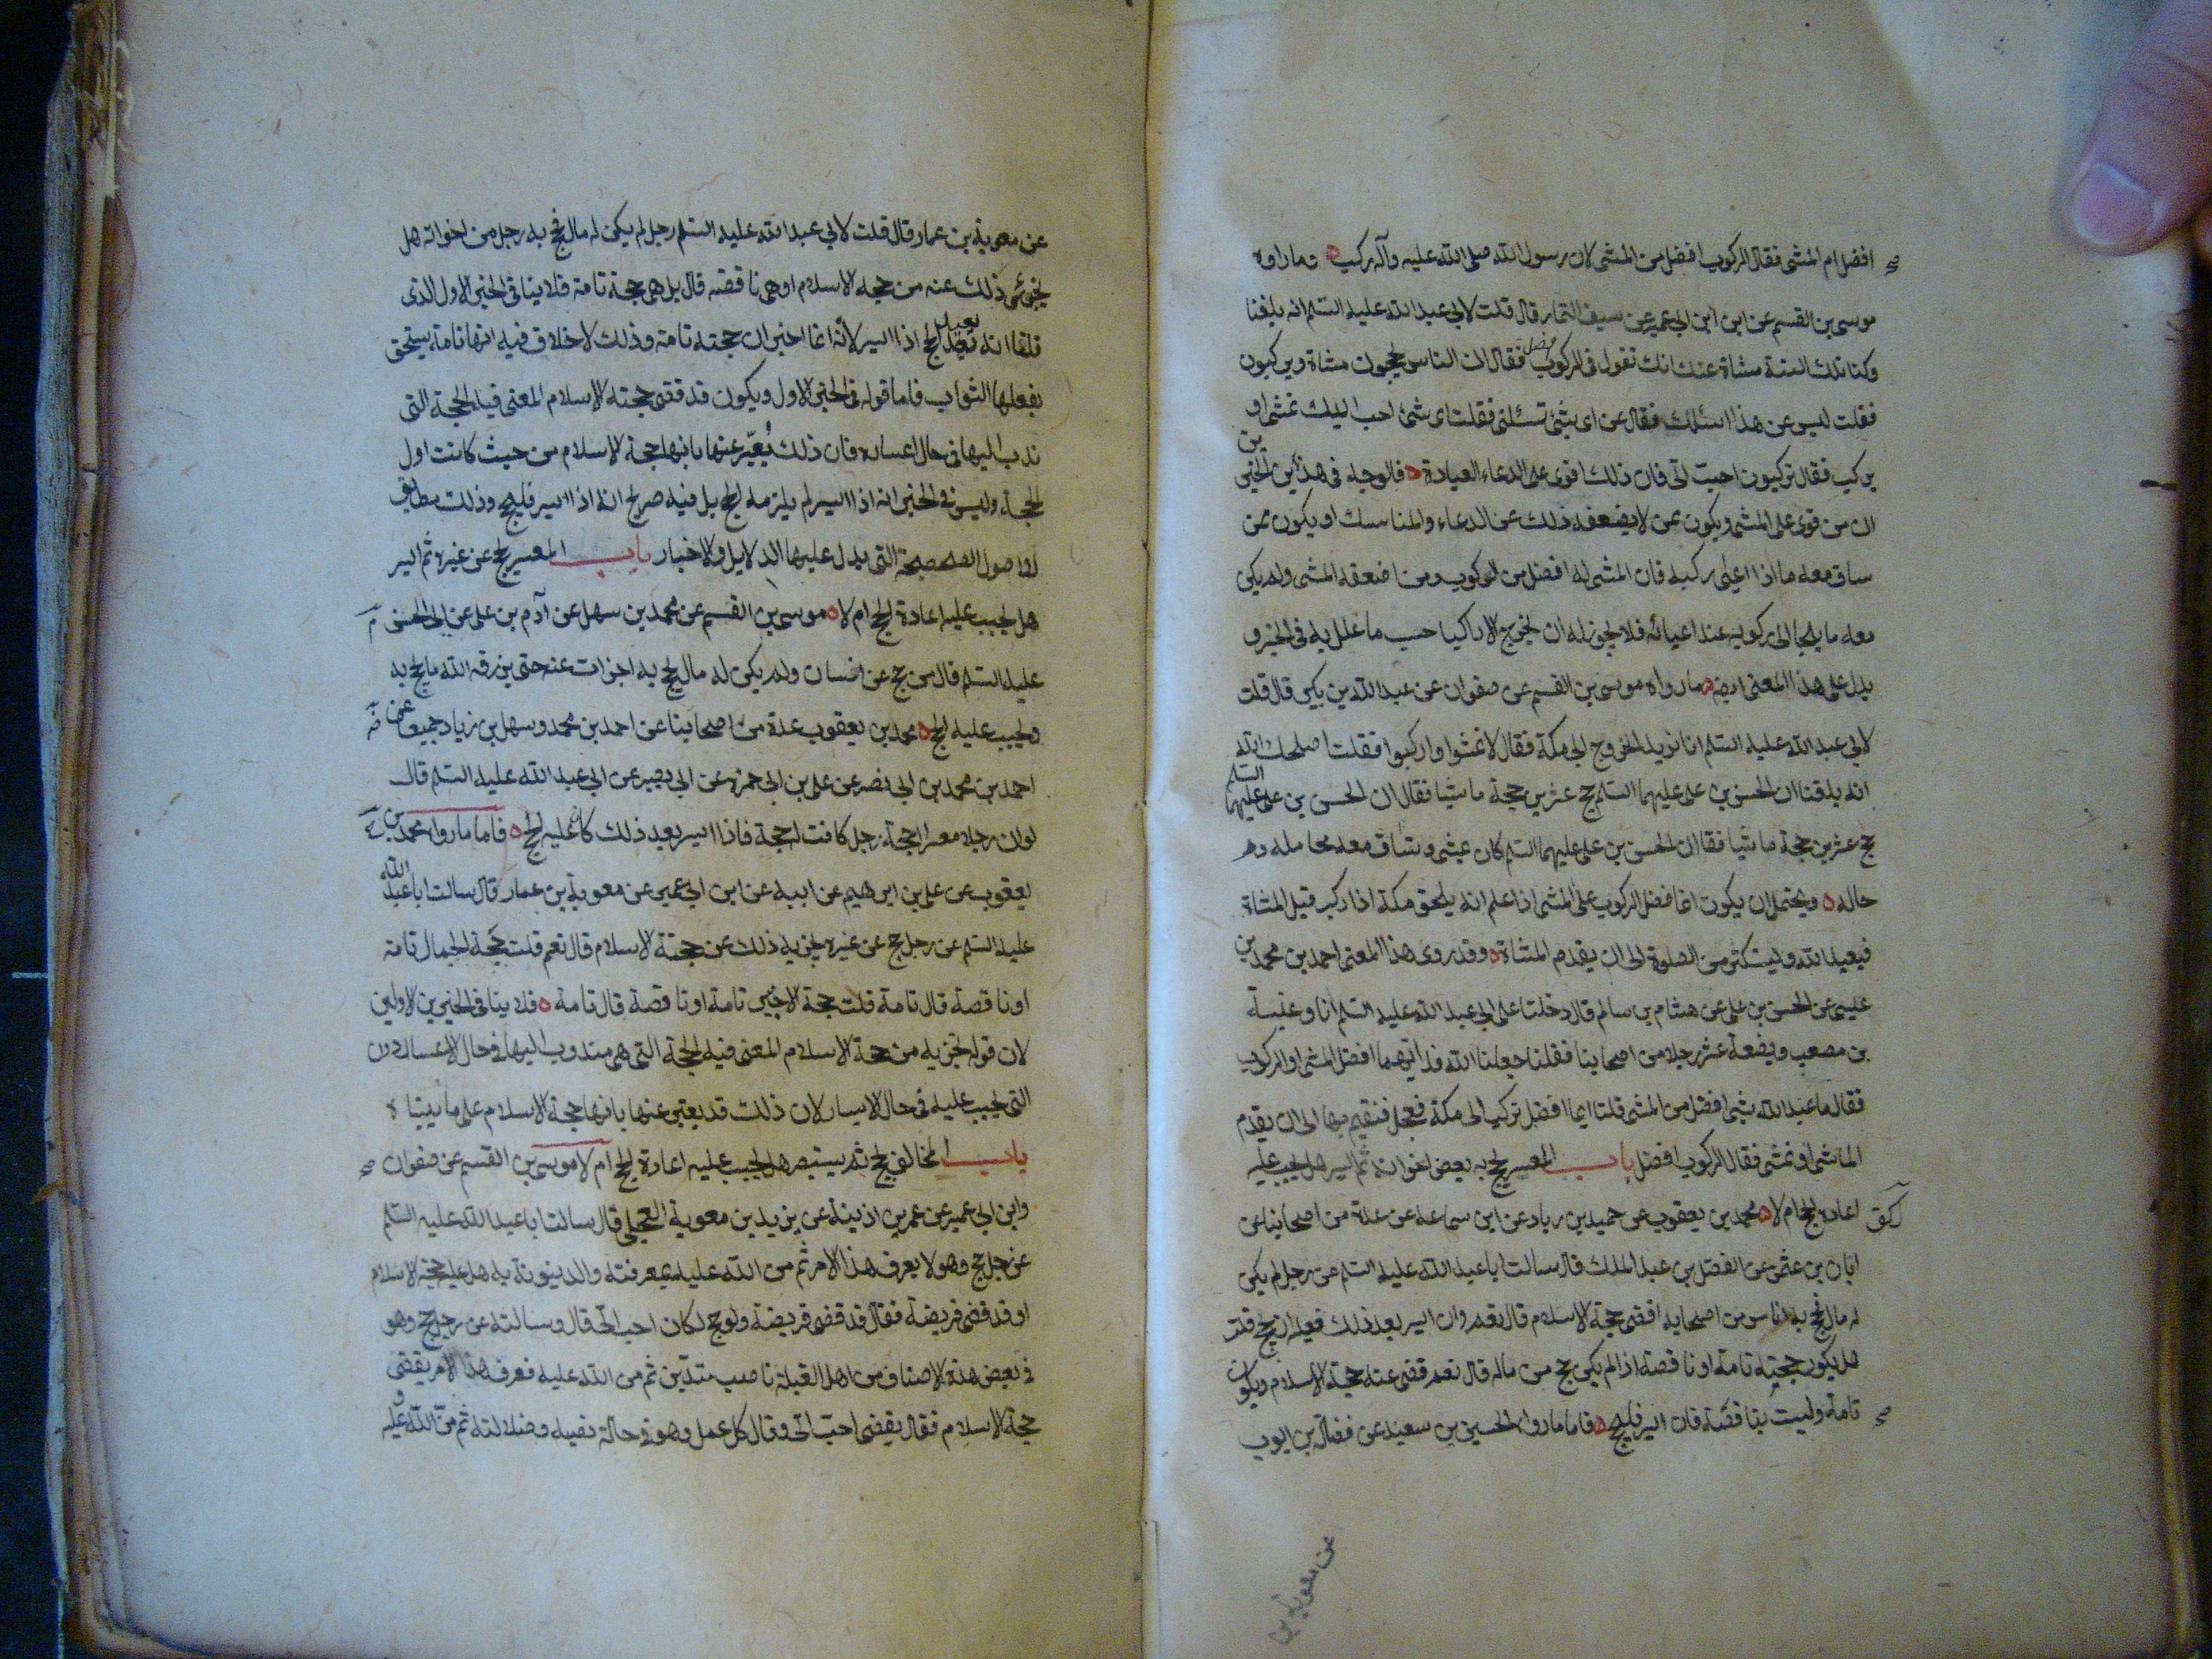 افضل ام المشى فقال الركوب افضل من المشى لان رسول الله صلى الله عليه وآله ركب ه وما رواه
موسى بن القسم عن ابن ابى عمير عن سيف التمار قال قلت لابى عبد الله عليه السلم انه بلغنا
وكنا تلك السنة مشاة عنك انك تقول فى الركوب فقال ان الناس يحجون مشاة ويركبون
فقلت ليس عن هذا اسئلك فقال عن اى شئ تسئلنى فقلت اى شئ احب اليك تمشى او
يركب فقال تركبون احب الى فان ذلك اقوى على الدعاء العبادة ه فالوجه فى هذين الخبرين
ان من قوى على المشى ويكون ممن لا يضعفه ذلك عن الدعاء والمناسك او يكون ممن
ساق معه ما اذا اعيى ركبه فان المشى له افضل من الركوب ومن اضعفه المشى ولم يكن
معه ما يلجا الى ركوبه عند اعيائه فلا يجوز له ان يخرج الا راكبا حسب ما علل به فى الخبر و
يدل على هذا المعنى ايضه ما رواه موسى بن القسم عن صفوان عن عبد الله بن بكير قال قلت
لابى عبد الله عليه السلم انا نريد الخروج الى مكة فقال لا تمشوا واركبوا فقلت اصلحك الله
انه بلغنا ان الحسن بن على عليهما السلم حج عشرين حجة ماشيا فقال ان الحسن بن على عليهما السلم
حج عشرين حجة ماشيا فقال ان الحسن بن على عليهما السلم كان يمشى وتساق معه محامله ور
حاله ه ويحتمل ان يكون انما فضل الركوب على المشى اذا علم انه يلحق مكة اذا ركب قبل المشاة
فيعبد الله وليستكثر من الصلوة الى ان يقدم المشاة ه وقد روى هذا المعنى احمد بن محمد بن
عيسى عن الحسن بن على عن هشام بن سالم قال دخلنا على ابى عبد الله عليه السلم انا وعنبسة
بن مصعب وبضعة عشر رجلا من اصحابنا فقلنا جعلنا الله فداك ايهما افضل المشى او الركوب
فقال ما عبد الله بشئ افضل من المشى قلنا ايما افضل نركب الى مكة فنعجل فنقيم بها الى ان يقدم
الماشى او نمشى فقال الركوب افضل باب المعسر يحج به بعض اخوانه ثم ايسر هل يجب عليه
اعادة الحج ام لا ه محمد بن يعقوب عن حميد بن زياد عن ابن سماعه عن عدة من اصحابنا عن
ابان بن عثمن عن الفضل بن عبد الملك قال سالت ابا عبد الله عليه السلم عن رجل لم يكن
له مال فحج به اناس من اصحابه اقضى حجة الاسلام قال نعم وان ايسر بعد ذلك فعليه ان يحج قلت
هل يكون حجته تامة او ناقصة اذا لم يكن حج من ماله قال نعم قضى عنه حجة الاسلام ويكون
تامة وليست بناقصة فان ايسر فليحج ه فاما ما رواه الحسين بن سعيد عن فضالة بن ايوب
عن معوية بن
عن معوية بن عمار قال قلت لابى عبد الله عليه السلم رجل لم يكن له مال فحج به رجل من اخوانه هل
يجزئى ذلك عنه من حجة الاسلام او هى ناقصه قال بل هى حجة تامة فلا ينافى الخبر الاول الذى
قلنا انه يعيد الحج اذا ايسر لانه انما اخبر ان حجته تامة وذلك لا خلاف فيه انها تامة يستحق
بفعلها الثواب فاما قوله فى الخبر الاول ويكون قد قضى حجة الاسلام المعنى فيه الحجة التى
ندب اليها فى حال اعساره فان ذلك يعبر عنها بانها حجة الاسلام من حيث كانت اول
الحجة وليس فى الخبر انه اذا ايسر لم يلزمه الحج بل فيه صريح انه اذا ايسر فليحج وذلك مطابق
للاصول الصحيحة التى يدل عليها الدلايل والاخبار باب المعسر يحج عن غيره ثم ايسر
هل يجب عليه اعادة الحج ام لا ه موسى بن القسم عن محمد بن سهل عن آدم بن على عن ابى الحسن
عليه السلم قال من حج عن انسان ولم يكن له مال يحج به اجزات عنه حتى يرزقه الله ما يحج به
ويجب عليه الحج ه محمد بن يعقوب عدة من اصحابنا عن احمد بن محمد وسهل بن زياد جميعا عن
احمد بن محمد بن ابى نصر عن على بن ابى حمزه عن ابى بصير عن ابى عبد الله عليه السلم قال
لو ان رجلا معسرا احجه رجل كانت له حجة فاذا ايسر بعد ذلك كان عليه الحج ه فاما ما رواه محمد بن
يعقوب عن على بن ابرهيم عن ابيه عن ابن ابى عمير عن معوية بن عمار قال سالت ابا عبد الله
عليه السلم عن رجل حج عن غيره يجزيه ذلك عن حجة الاسلام قال نعم قلت حجة الجمال تامة
او ناقصة قال تامة قلت حجة الاجير تامة او ناقصة قال تامة ه فلا ينافى الخبرين الاولين
لان قوله يجزيه من حجة الاسلام المعنى فيه الحجة التى هى مندوب اليها فى حال الاعسار دون
التى يجب عليه فى حال الايسار لان ذلك قد يعبر عنها بانها حجة الاسلام على ما بيناه
باب المخالف يحج ثم يستبصر هل يجب عليه اعادة الحج ام لا موسى بن القسم عن صفوان
وابن ابى عمير عن عمر بن اذينة عن بريد بن معوية العجلى قال سالت ابا عبد الله عليه السلم
عن رجل حج وهو لا يعرف هذا الامر ثم من الله عليه بمعرفته والدينونة به هل عليه حجة الاسلام
او قد قضى فريضة فقال قد قضى فريضة ولو حج لكان احب الى قال وسالته عن رجل حج وهو
فى بعض هذه الاصناف من اهل القبلة ناصب متدين ثم من الله عليه فعرف هذا الامر يقضى
حجة الاسلام فقال يقضى احب الى وقال كل عمل وهو فى حالة نصبه وضلالته ثم من الله عليه و